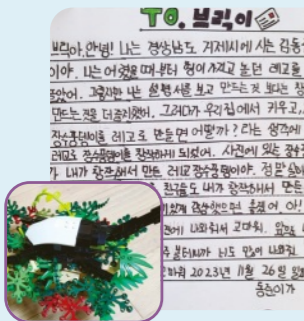 TO. 브릭이
브릭아, 안녕! 나는 경상남도 거제시에 사는 김동
이야. 나는 어렸을 때부터 형이 가지고 놀던 레고를
그렇지만 나는 설명서를 보고 만드는 것 보다는 창
만드는 것을 더 좋아했어. 그러다가 우리 집에서 키우고
장수풍뎅이를 레고로 만들면 어떨까? 라는 생각에
레고로 장수풍뎅이를 창작하게 되었어. 사진에 있는 장수
가 내가 창작해서 만든 레고 장수풍뎅이야. 정말
친구들도 내가 창작해서 만든
좋겠어 아!
나와줘서 고마워.
많이 나와줘.
2023년 11월 26일
동준이가